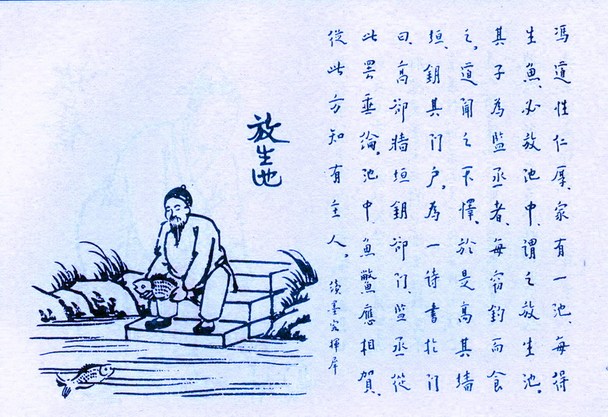 放生池
馮道性仁厚、家有一池、每得
生魚、必放池中、謂之放生池。
其子為監丞者、每窃釣而食
之。道聞之不懌、於是高其墻
垣、鈅其門户、為一詩書於門
曰、高卻墻垣鈅卻門、監丞從
此罢垂綸。池中魚鱉應相賀、
從此方知有主人。
續墨客揮犀